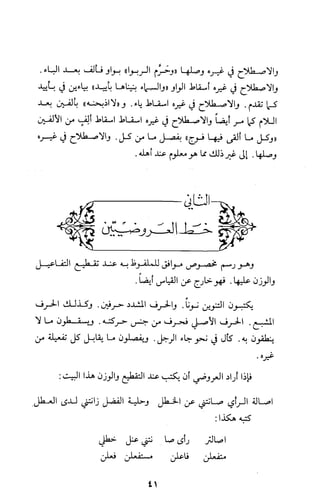 والاصطلاح في غيره وصلها «وحَرَّم الربوا» بواو فألف بعد الباء.
والاصطلاح في غيره اسقاط الواو «والسماء بنيناها بأييد» بياءين في بأييد
كما تقدم. والاصطلاح في غيره اسقاط ياء. و «لااذبحنه» بألفين بعد
اللام كما مر أيضاً والاصطلاح في غيره اسقاط اسقاط ألِفٍ من الألفين
«وكل ما ألقى فيها فوج» بفصل ما من كل. والاصطلاح في غيره
وصلها. إلى غير ذلك مما هو معلوم عند أهله.
الثاني
خط العروضيين
وهو رسم مخصوص موافق للملفوظ به عند تقطيع التفاعيل
والوزن عليها. فهو خارج عن القياس أيضاً.
يكتبون التنوين نوناً. والحرف المشدد حرفين. وكذلك الحرف
المشبع. الحرف الأصلي فحرف من جنس حركته. ويسقطون ما لا
ينطقون به. كأل في نحو جاء الرجل. ويفصلون ما يقابل كل تفعيلة من
غيره.
فإذا أراد العروضي أن يكتب عند التقطيع والوزن هذا البيت:
اصالة الرأي صانتني عن الخطل وحلية الفضل زانتني لدى العطل
كتبه هكذا:
اصالتر رأى صا نتني عنل خطلي
متفعلن فاعلن مستفعلن فعلن
٤١